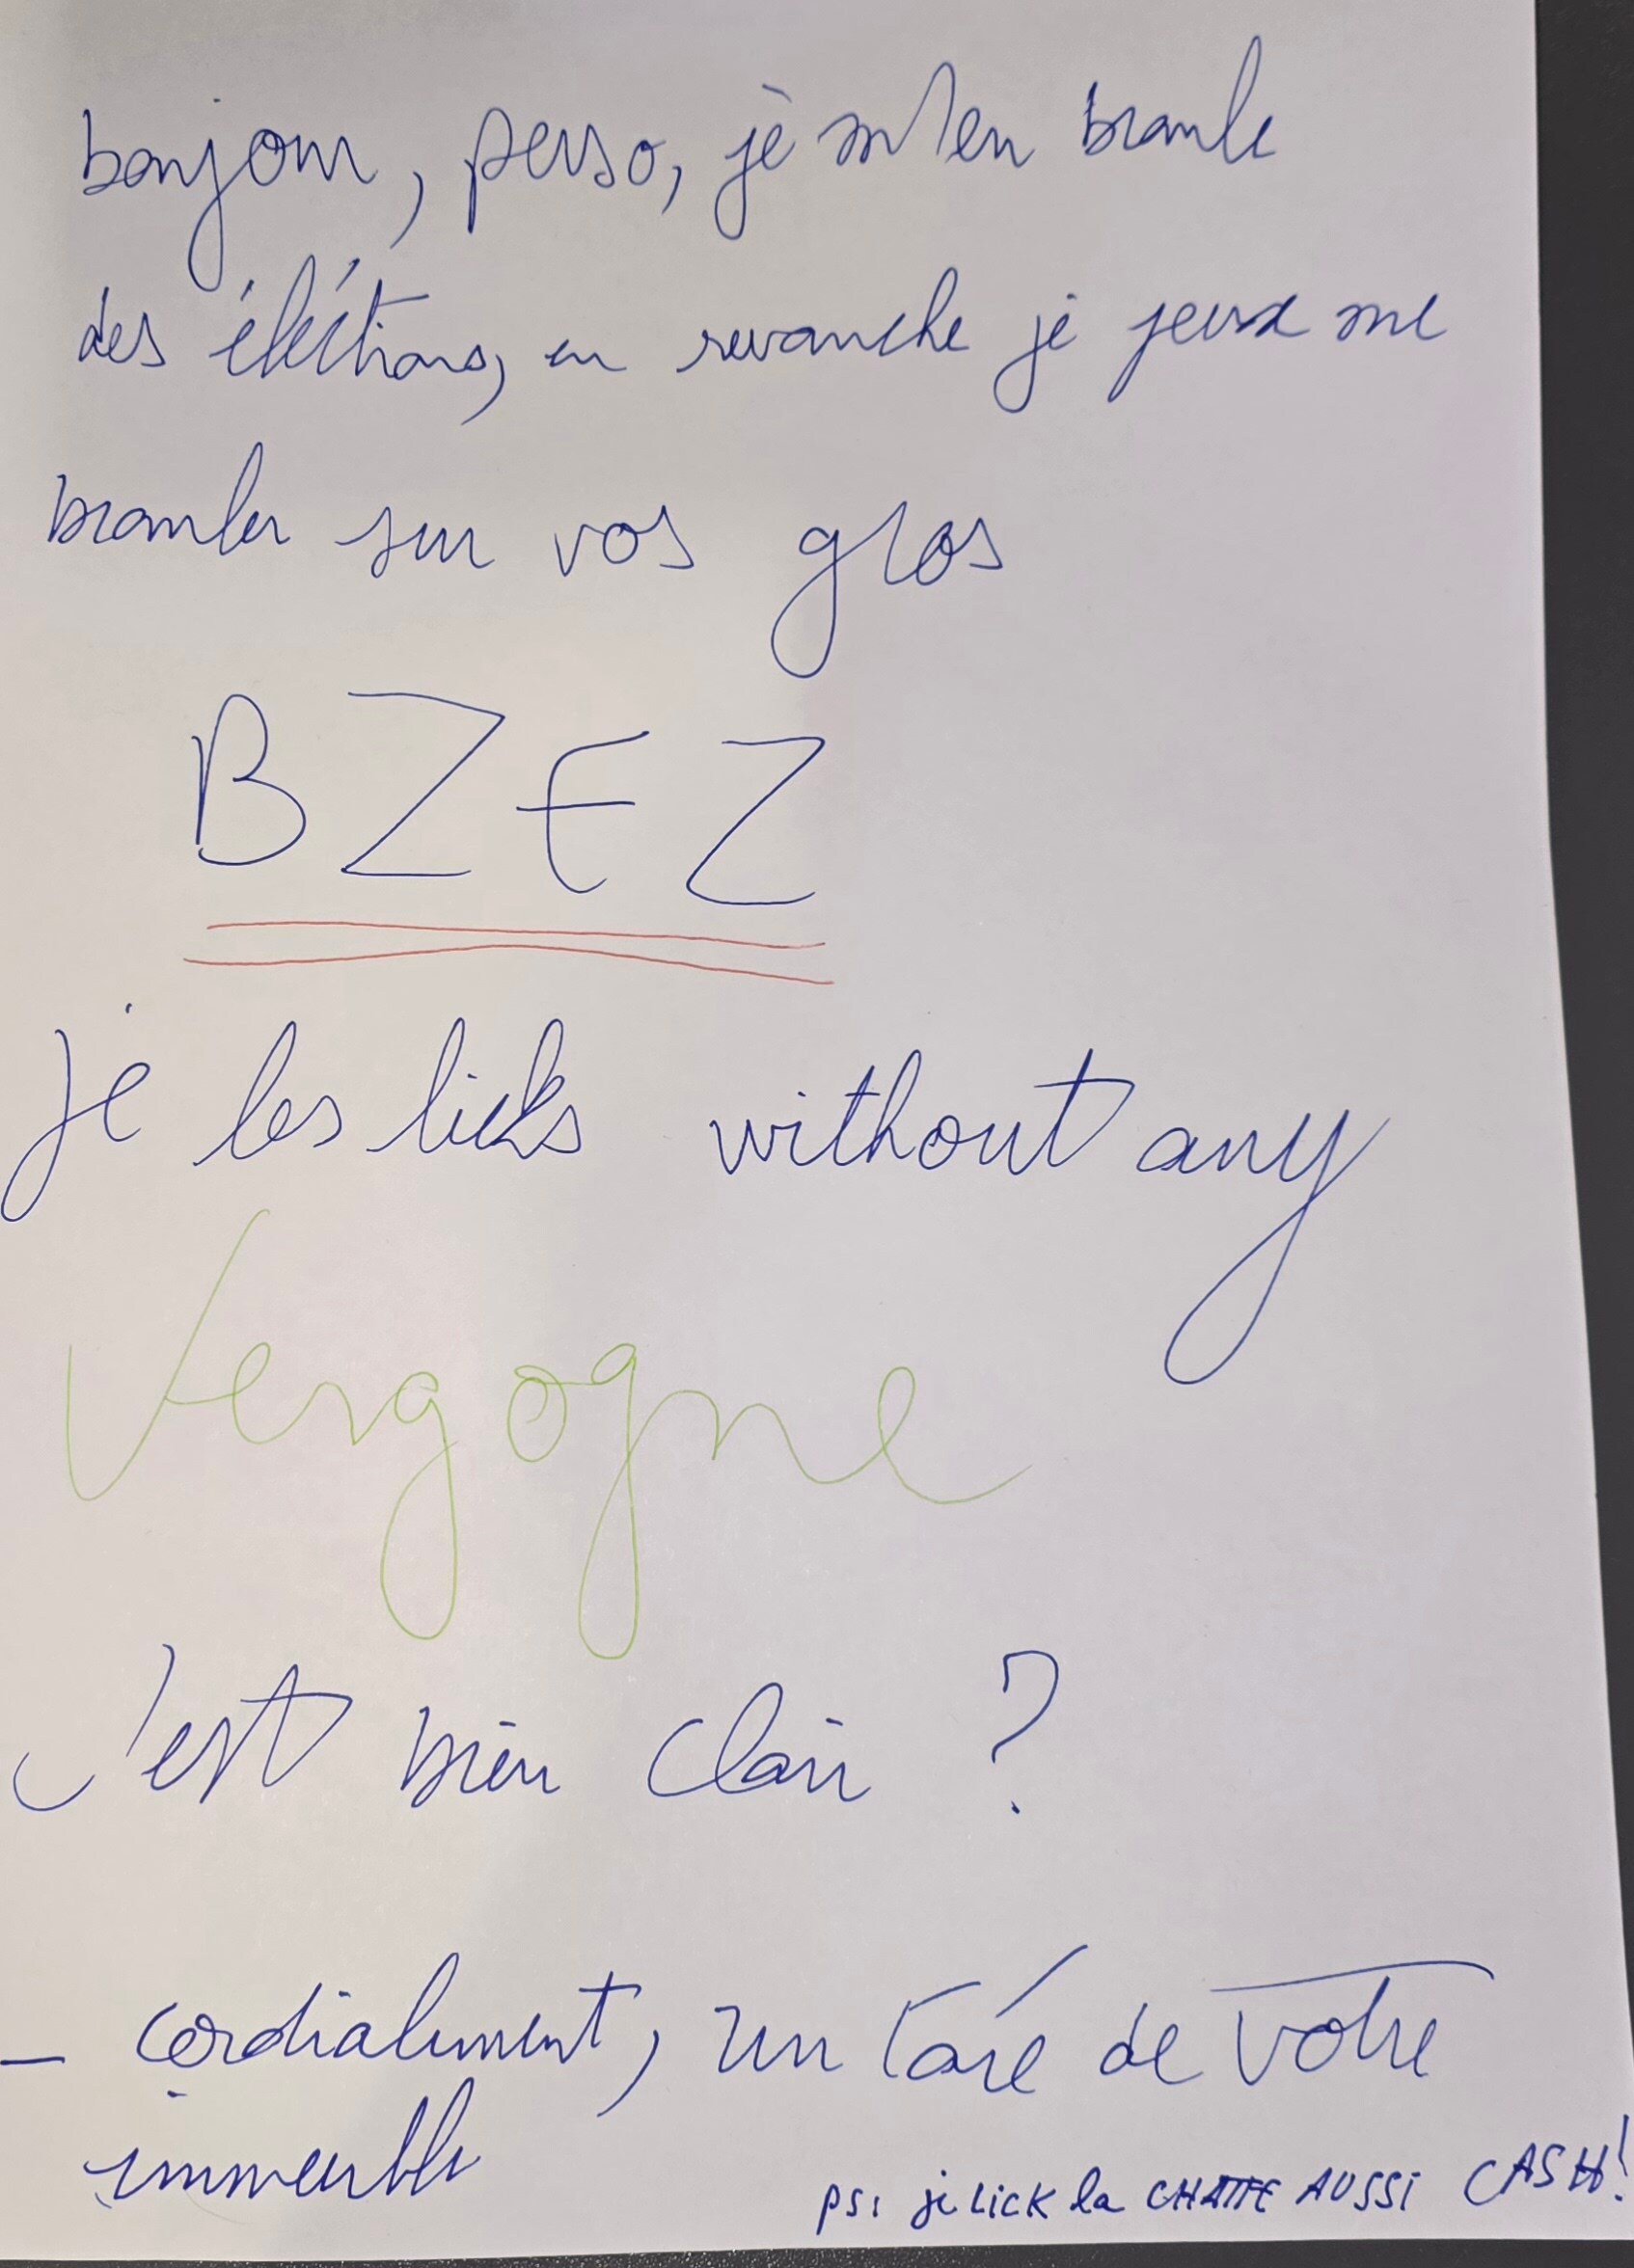 bonjour, perso, je m'en branle
des éléctions, en revanche je peux me
branler sur vos gros
BZEZ
je les licks without any
Vergogne
c'est bien clair ?
- cordialement, un taré de votre
immeuble
ps: je LICK la CHATTE AUSSI CASH!